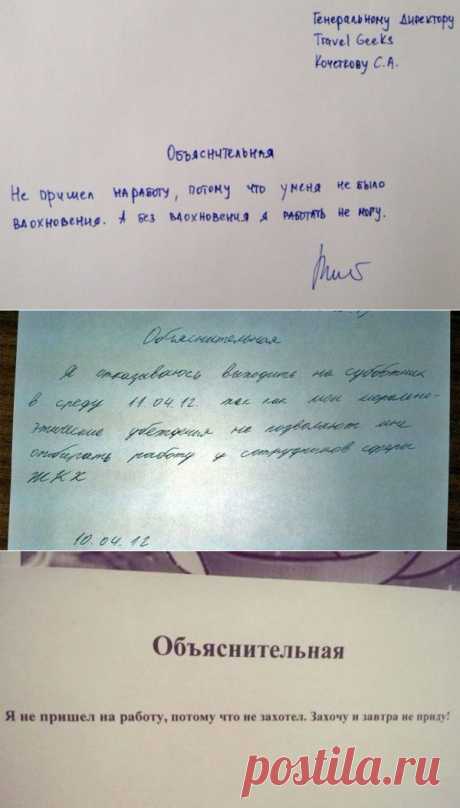 Генеральному Директору
Travel Geeks
Кочеткову С.А.
Объяснительная
Не пришел на работу, потому что у меня не было
вдохновения. А без вдохновения я работать не могу.
Объяснительная
Я отказываюсь выходить на субботник
в среду 11.04.12. так как мои морально-
этические убеждения не подволяют мне
отбирать работу у сотрудников сферы
ЖКХ
10.04.12
Объяснительная
Я не пришел на работу, потому что не захотел. Захочу и завтра не приду!
postila.ru